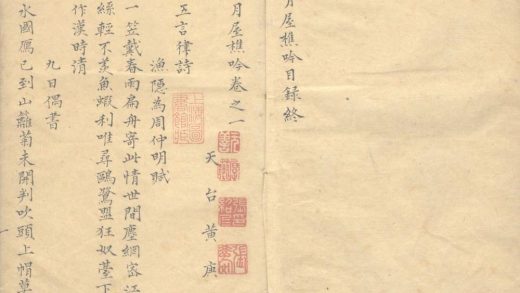 月屋樵吟目録終
月屋樵吟卷之一
天台黄庚
五言律詩
漁隱為周仲明賦
一笠戴春雨扁舟寄此情世間塵網密江
絲輕不羡魚蝦利唯尋鷗鷺盟狂奴臺下
作漢時清
九日偶書
水國鴈已到山籬菊未開判吹頭上帽